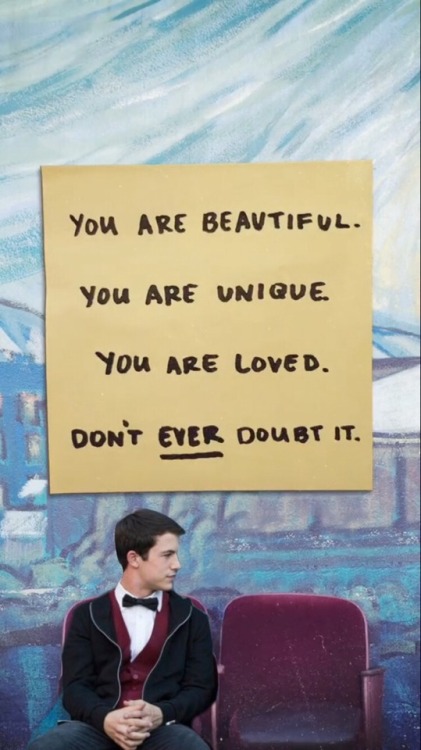 YOU ARE BEAUTIFUL.
YOU ARE UNIQUE.
YOU ARE LOVED.
DON'T EVER DOUBT IT.